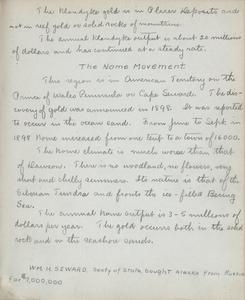 The Klondyke gold is in Placer deposits and
not in reef gold or solid rocks of mountains.
The annual Klondyke output is about 20 millions
of dollars and has continued at a steady rate.
The Nome Movement
This region is in American Territory on the
of Wales Peninsula on Cape Seward. The dis-
covery of gold was announced in 1898. It was reported
to occur in the ocean sand. From June to Sept. in
1898 Nome increased from one tent to a town of 16000.
The Nome climate is much worse than that
of Dawson. There is no woodland, no flowers, very
short and chilly summers. Its nature is that of the
Siberian Tundra and fronts the ice-filled Bering
Sea.
The annual Nome output is 3-5 millions of
dollars per year. The gold occurs both in the solid
rock and in the seashore sands.
WM. H. SEWARD, Secty of State, bought Alaska from Russia
For $7,000,000